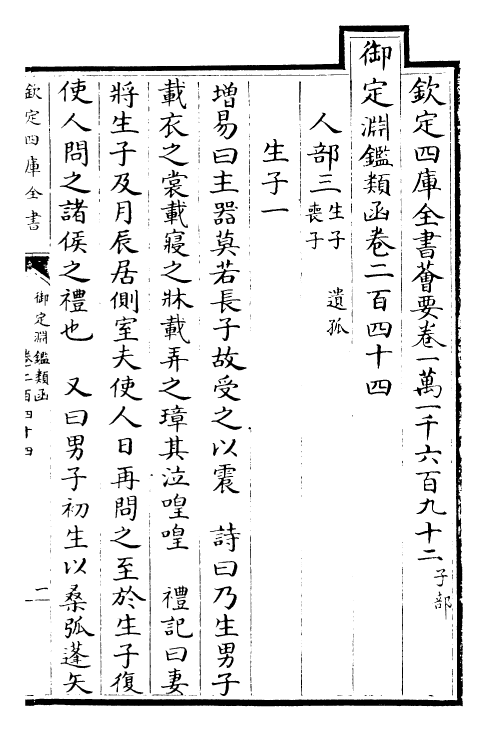 欽定四庫全書薈要卷一萬一千六百九十二子部
御定淵鑑類函卷二百四十四
人部三生子 遺孤
喪子
生子一
增易曰主器莫若長子故受之以震 詩曰乃生男子
載衣之裳載寢之牀載弄之璋其泣喤喤 禮記曰妻
將生子及月辰居側室夫使人日再問之至於生子復
使人問之諸侯之禮也 又曰男子初生以桑弧蓬矢
欽定四庫全書
御定淵鑑類函
卷二百四十四
一